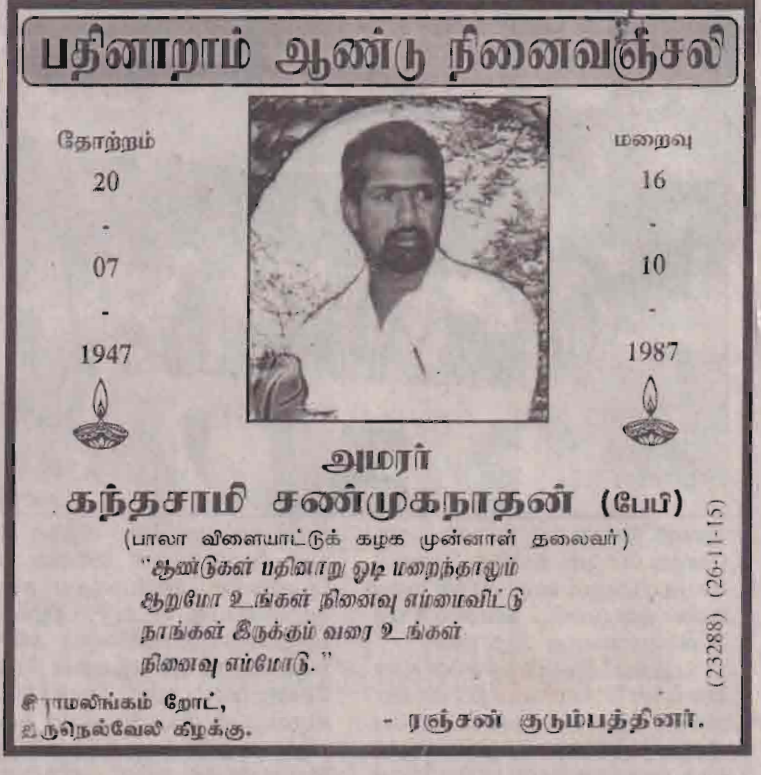 பதினாறாம் ஆண்டு நினைவஞ்சலி
தோற்றம்
20
-
07
-
1947
மறைவு
16
-
10
-
1987
அமரர்
கந்தசாமி சண்முகநாதன் (பேபி)
(பாலா விளையாட்டுக் கழக முன்னாள் தலைவர்)
"ஆண்டுகள் பதினாறு ஓடி மறைந்தாலும்
ஆறுமோ உங்கள் நினைவு எம்மைவிட்டு
நாங்கள் இருக்கும் வரை உங்கள்
நினைவு எம்மோடு."
இராமலிங்கம் றோட்,
திருநெல்வேலி கிழக்கு.
- ரஞ்சன் குடும்பத்தினர்.
(23288) (26-11-15)